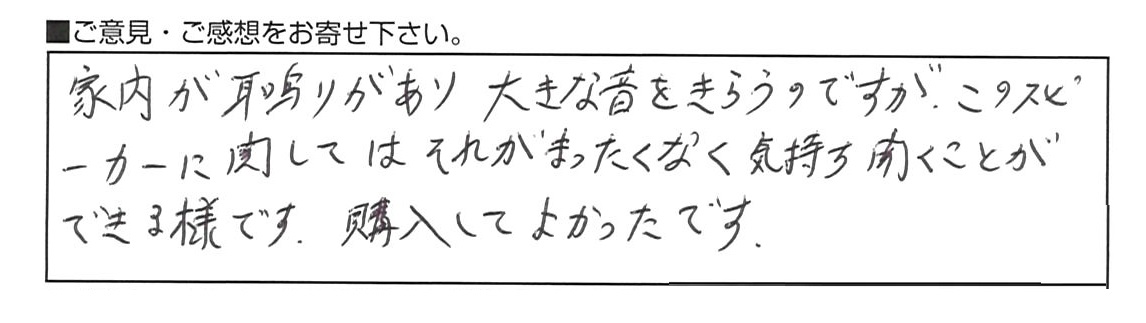 ■ご意見・ご感想をお寄せ下さい。
家内が耳鳴りがあり 大きな音をきらうのですが、このスピ
ーカーに関しては それがまったくなく 気持ち 聞くことが
できる様です。購入してよかったです。